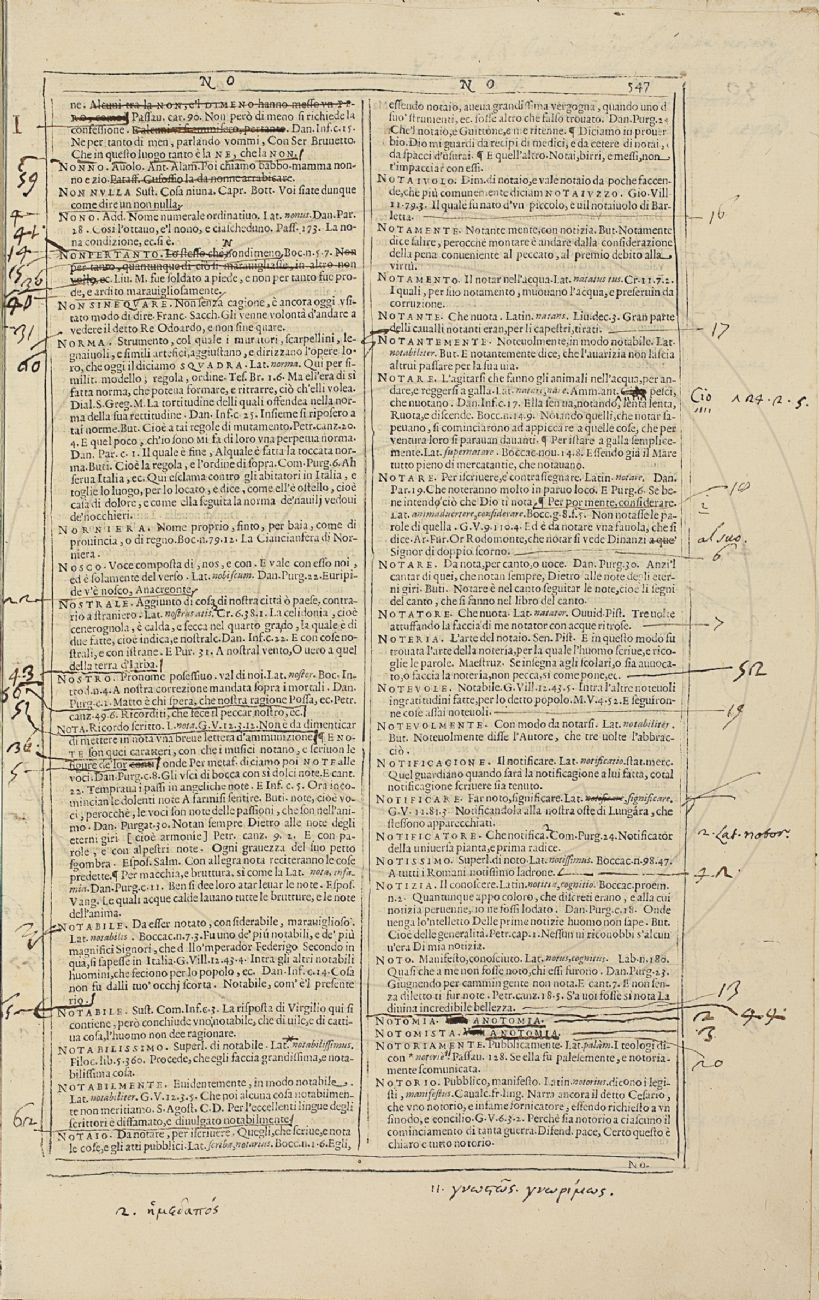 N O
N O 547
ne. Alcuni tra la NON, e'l DIMENO hanno messo vn PE-
RO, come Passau. car. 90. Non però di meno si richiede la
confessione. Dan. Inf. c. 15.
Ne per tanto di men, parlando vommi, Con Ser Brunetto.
Che in questo luogo tanto è la NE, che la NON.
NONNO. Auolo. Ant. Alam. Poi chiamo babbo-mamma non-
no e zio. Pataff.
NON NVLLA Sust. Cosa niuna. Capr. Bott. Voi siate dunque
come dire un non nulla.
NONO. Add. Nome numerale ordinatiuo. Lat. nonus. Dan. Par.
28. Così l'ottauo, e'l nono, e ciascheduno. Pass. 173. La no-
na condizione, ec. si è.
NONPERTANTO. Lo stesso che, nondimeno. Boc. n. 5. 7. Non
per tanto, quantunque di ciò si marauigliasse, in altro non
volle, ec. Liu. M. fue soldato a piede, e non per tanto fue pro-
de, e ardito marauigliosamente.
NON SINE QVARE. Non senza cagione, è ancora oggi vsi-
tato modo di dire. Franc. Sacch. Gli venne volontà d'andare a
vedere il detto Re Odoardo, e non sine quare.
NORMA. Strumento, col quale i muratori, scarpellini, le-
gnaiuoli, e simili artefici, aggiustano, e dirizzano l'opere lo-
ro, che oggi il diciamo SQVADRA. Lat. norma. Qui per si-
milit. modello, regola, ordine. Tes. Br. 1. 6. Ma elì'era di sì
fatta norma, che poteua formare, e ritrarre, ciò ch'elli volea.
Dial. S. Greg. M. La tortitudine delli quali offendea nella nor-
ma della sua rettitudine. Dan. Inf. c. 25. Insieme si rispose a
tai norme. But. Cioè a tai regole di mutamento. Petr. canz. 20.
4. E quel poco, ch'io sono Mi fa di loro vna perpetua norma.
Dan. Par. c. 1. Il quale è fine, Al quale è fatta la toccata nor-
ma. Buti. Cioè la regola, e l'ordine di sopra. Com. Purg. 6. Ah
serua Italia, ec. Qui esclama contro gli abitatori in Italia, e
toglie lo luogo, per lo locato, e dice, come ell'è ostello, cioè
casa di dolore, e come ella seguita la norma de'nauilj vedoui
de'nocchieri.
NORNIERA. Nome proprio, finto, per baia, come di
prouincia, o di regno. Boc. n. 79. 12. La Ciancianfera di Nor-
niera.
NOSCO. Voce composta di, nos, e con. E vale con esso noi,
ed è solamente del verso. Lat. nobiscum. Dan. Purg. 22. Euripi-
de v'è nosco, Anacreonte.
NOSTRALE. Aggiunto di cosa di nostra città o paese, contra-
rio a straniero. Lat. nostratis. Cr. 6. 38. 1. La celidonia, cioè
cenerognola, è calda, e secca nel quarto grado, la quale è di
due fatte, cioè indica, e nostrale. Dan. Inf. c. 22. E con cose no-
strali, e con istrane. E Pur. 31. A nostral vento, O uero a quel
della terra d'Iarba.
NOSTRO. Pronome possessiuo. val di noi. Lat. noster. Boc. In-
trod. n. 4. A nostra correzione mandata sopra i mortali. Dan.
Purg. c. 3. Matto è chi spera, che nostra ragione Possa, ec. Petr.
canz. 49. 6. Ricorditi, che fece il peccar nostro, ec.
NOTA. Ricordo scritto. L. nota. G. V. 12. 3. 12. Non è da dimenticar
di mettere in nota vna breue lettera d'ammunizione. ¶ E NO-
TE son quei caratteri, con che i musici notano, e scriuon le
figure de'lor onde Per metaf. diciamo poi NOTE alle
voci. Dan. Purg. c. 8. Gli vscì di bocca con sì dolci note. E cant.
22. Tempraua i passi in angeliche note. E Inf. c. 5. Ora inco-
mincian le dolenti note A farmisi sentire. Buti. note, cioè vo-
ci, perocchè, le voci son note delle passioni, che son nell'ani-
mo. Dan. Purgat. 30. Notan sempre Dietro alle note degli
eterni giri [cioè armonie] Petr. canz. 9. 2. E con pa-
role, e con alpestri note. Ogni grauezza del suo petto
sgombra. Espos. Salm. Con allegra nota reciteranno le cose
predette. ¶ Per macchia, e bruttura, sì come la Lat. nota, infa-
mia. Dan. Purg. c. 11. Ben si dee loro atar leuar le note. Espos.
Vang. Le quali acque calde lauano tutte le brutture, e le note
dell'anima.
NOTABILE. Da esser notato, considerabile, marauiglioso.
Lat. notabilis. Boccac. n. 7. 3. Fu uno de' più notabili, e de' più
magnifici Signori, che dallo'mperador Federigo Secondo in
qua, si sapesse in Italia. G. Vill. 12. 43. 4. Intra gli altri notabili
huomini, che feciono per lo popolo, ec. Dan. Inf. c. 14. Cosa
non fu dalli tuo' occhj scorta. Notabile, com'è l presente
rio.
NOTABILE. Sust. Com. Inf. c. 3. La risposta di Virgilio qui si
contiene, però conchiude vno notabile, che di uile, e di catti-
ua cosa, l'huomo non dee ragionare.
NOTABILISSIMO. Superl. di notabile. Lat. notabilissimus.
Filoc. lib. 5. 360. Procede, che egli faccia grandissima, e nota-
bilissima cosa.
NOTABILMENTE. Euidentemente, in modo notabile.
Lat. notabiliter. G. V. 12. 3. 5. Che poi alcuna cosa notabilmen-
te non meritiamo. S. Agost. C. D. Per l'eccellenti lingue degli
scrittori è diffamato, e diuulgato notabilmente.
NOTAIO. Da notare, per iscriuere. Quegli, che scriue, e nota
le cose, e gli atti pubblici. Lat. scriba, notarius. Bocc. n. 1. 6. Egli,
essendo notaio, aueua grandissima vergogna, quando uno d
suo' strumenti, ec. fosse altro che falso trouato. Dan. Purg. 24
Che'l notaio, e Guittone, e me ritenne. ¶ Diciamo in prouer
bio. Dio mi guardi da recipi di medici, e da cetere di notai, e
da spacci d'usurai. ¶ E quell'altro. Notai, birri, e messi, non
t'impacciar con essi.
NOTAIVOLO. Dim. di notaio, e vale notaio da poche faccen-
de, che più comunemente diciam NOTAIVZZO. Gio. Vill.
11. 79. 3. Il quale fu nato d'vn piccolo, e uil notaiuolo di Bar-
letta.
NOTAMENTE. Notantemente, con notizia. But. Notamente
dice salire, perocche montare è andare dalla considerazione
della pena conueniente al peccato, al premio debito alla
virtù.
NOTAMENTO. Il notar nell'acqua. Lat. natatus tus. Cr. 11. 7. 2.
I quali, per suo notamento, muouano l'acqua, e preseruin da
corruzione.
NOTANTE. Che nuota. Latin. natans. Liu. dec. 3. Gran parte
delli caualli notanti eran, per li capestri, tirati.
NOTANTEMENTE. Noteuolmente, in modo notabile. Lat.
notabiliter. But. E notantemente dice, che l'auarizia non lascia
altrui passare per la sua uia.
NOTARE. L'agitarsi che fanno gli animali nell'acqua, per an-
dare, e reggersi a galla. Lat. natare, nare. Amm. ant. pesci,
che nuotano. Dan. Inf. c. 17. Ella sen ua, notando, lenta lenta,
Ruota, e discende. Bocc. n. 14. 9. Notando quelli, che notar sa-
peuano, si cominciarono ad appiccare a quelle cose, che per
ventura loro si parauan dauanti. ¶ Per istare a galla semplice-
mente. Lat. supernatare. Boccac. nou. 14. 8. Essendo già il Mare
tutto pieno di mercatantie, che notauano.
NOTARE. Per iscriuere, e contrassegnare. Latin. notare. Dan.
Par. 19. Che noteranno molto in paruo loco. E Purg. 6. Se be-
ne intendi ciò che Dio ti nota. ¶ Per por mente, considerare.
Lat. animaduertere, considerare. Bocc. g. 8. f. 5. Non notasse le pa-
role di quella. G. V. 9. 110. 4. Ed è da notare vna fauola, che si
dice. Ar. Fur. Or Rodomonte, che notar si vede Dinanzi a que'
Signor di doppio scorno.
NOTARE. Da nota, per canto, o uoce. Dan. Purg. 30. Anzi'l
cantar di quei, che notan sempre, Dietro alle note degli eter-
ni giri. Buti. Notare è nel canto seguitar le note, cioè li segni
del canto, che si fanno nel libro del canto.
NOTATORE. Che nuota. Lat. natator. Ouuid. Pist. Tre uolte
attuffando la faccia di me notator con acque ritrose.
NOTERIA. L'arte del notaio. Sen. Pist. E in questo modo su
trouata l'arte della noteria, per la quale l'huomo scriue, e rico-
glie le parole. Maestruz. Se insegna agli scolari, o sia auuoca-
to, o faccia la noteria, non pecca, si come pone, ec.
NOTEVOLE. Notabile. G. Vill. 12. 43. 5. Intra l'altre noteuoli
ingratitudini fatte, per lo detto popolo. M. V. 4. 52. E seguiron-
ne cose assai noteuoli.
NOTEVOLMENTE. Con modo da notarsi. Lat. notabiliter.
But. Noteuolmente disse l'Autore, che tre uolte l'abbrac-
ciò.
NOTIFICAGIONE. Il notificare. Lat. notificatio. Stat. merc.
Quel guardiano quando sarà la notificagione a lui fatta, cotal
notificagione scriuere sia tenuto.
NOTIFICARE. Far noto, significare. Lat. notificare, significare.
G. V. 11. 81. 3. Notificandola alla nostra oste di Lungara, che
stessono apparecchiati.
NOTIFICATORE. Che notifica. Com. Purg. 24. Notificator
della uniuersa pianta, e prima radice.
NOTISSIMO. Superl. di noto. Lat. notissimus. Boccac. n. 98. 47.
A tutti i Romani notissimo ladrone.
NOTIZIA. Il conoscere. Latin. notitia, cognitio. Boccac. proem.
n. 2. Quantunque appo coloro, che discreti erano, e alla cui
notizia peruenne, io ne fossi lodato. Dan. Purg. c. 18. Onde
uenga lo'ntelletto Delle prime notizie huomo non sape. But.
Cioè delle generalità. Petr. cap. 1. Nessun ui riconobbi s'alcun
u'era Di mia notizia.
NOTO. Manifesto, conosciuto. Lat. notus, cognitus. Lab. n. 180.
Quasi che a me non fosse noto, chi essi furono. Dan. Purg. 23.
Giugnendo per cammin gente non nota. E cant. 7. E non sen-
za diletto ti fur note. Petr. canz. 18. 5. S'a uoi fosse sì nota La
diuina incredibile bellezza.
NOTOMIA. ANOTOMIA.
NOTOMISTA. ANOTOMIA.
NOTORIAMENTE. Pubblicamente. Lat. palam. I teologi di-
con notoriè. Passau. 128. Se ella fu palesemente, e notoria-
mente scomunicata.
NOTORIO. Pubblico, manifesto. Latin. notorius. dicono i legi-
sti, manifestus. Caualc. fr. ling. Narra ancora il detto Cesario,
che vno notorio, e infame fornicatore, essendo richiesto a vn
sinodo, e concilio. G. V. 6. 3. 2. Perchè sia notorio a ciascuno il
cominciamento di tanta guerra. Difend. pace, Certo questo è
chiaro e tutto notorio.
No.
1
59
4
41
14
15
26
40
31
60
22
43
56
51
36
5
62
16
17
Cio 124. 2. 5.
18
al suo.
6
7
52
19
2. Lat. notor.
42
13
2 44
3
20
11. γνωστῶς. γνωρίμως.
2. ἡμεδαπός